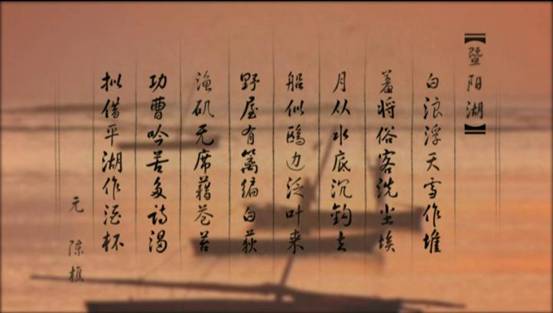 【暨阳湖】
白浪浮天雪作堆
着将俗客洗尘埃
月从水底沉钩去
船似鸥边泛叶来
野屋有篱编白荻
渔矶无席藉苍苔
功曹吟苦多诗渴
拟借平湖作酒杯
元 陈樵